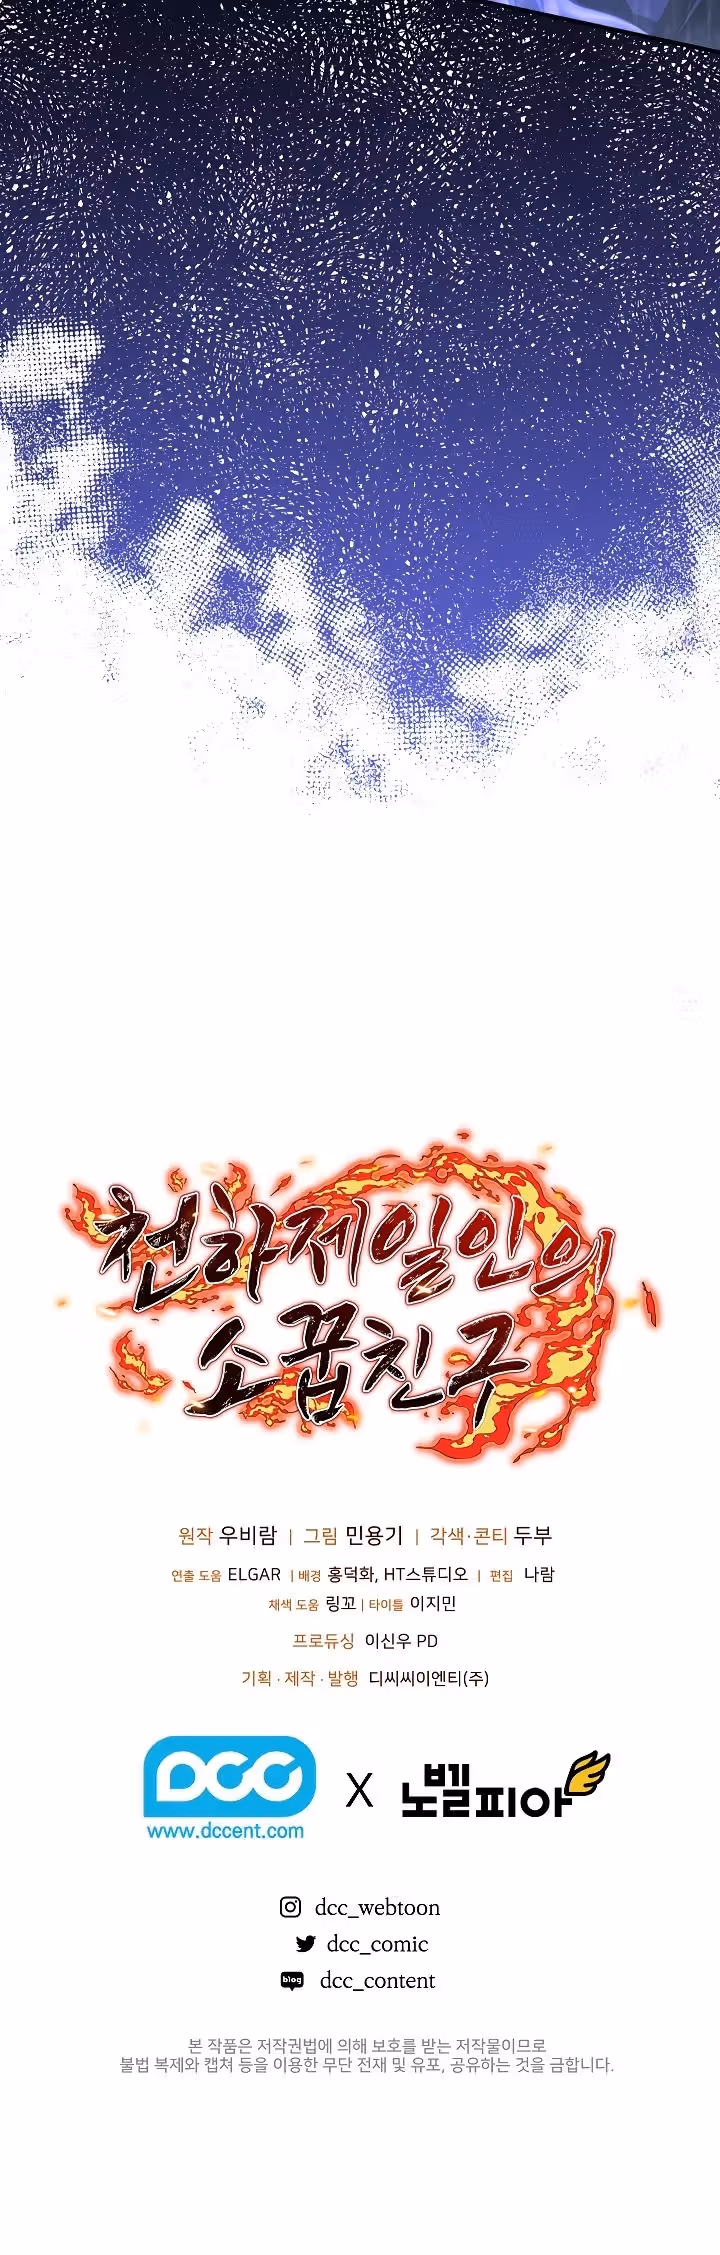 천하제일인의
소꿉친구
원작 우비람 | 그림 민용기 | 각색·콘티 두부
연출 도움 ELGAR | 배경 홍덕화, HT스튜디오 | 편집 나람
채색 도움 링꼬 | 타이틀 이지민
프로듀싱 이신우 PD
기획 · 제작 · 발행 디씨씨이엔티(주)
DCC X 노벨피아
www.dccent.com
dcc_webtoon
dcc_comic
blog dcc_content
본 작품은 저작권법에 의해 보호를 받는 저작물이므로
불법 복제와 캡쳐 등을 이용한 무단 전재 및 유포, 공유하는 것을 금합니다.